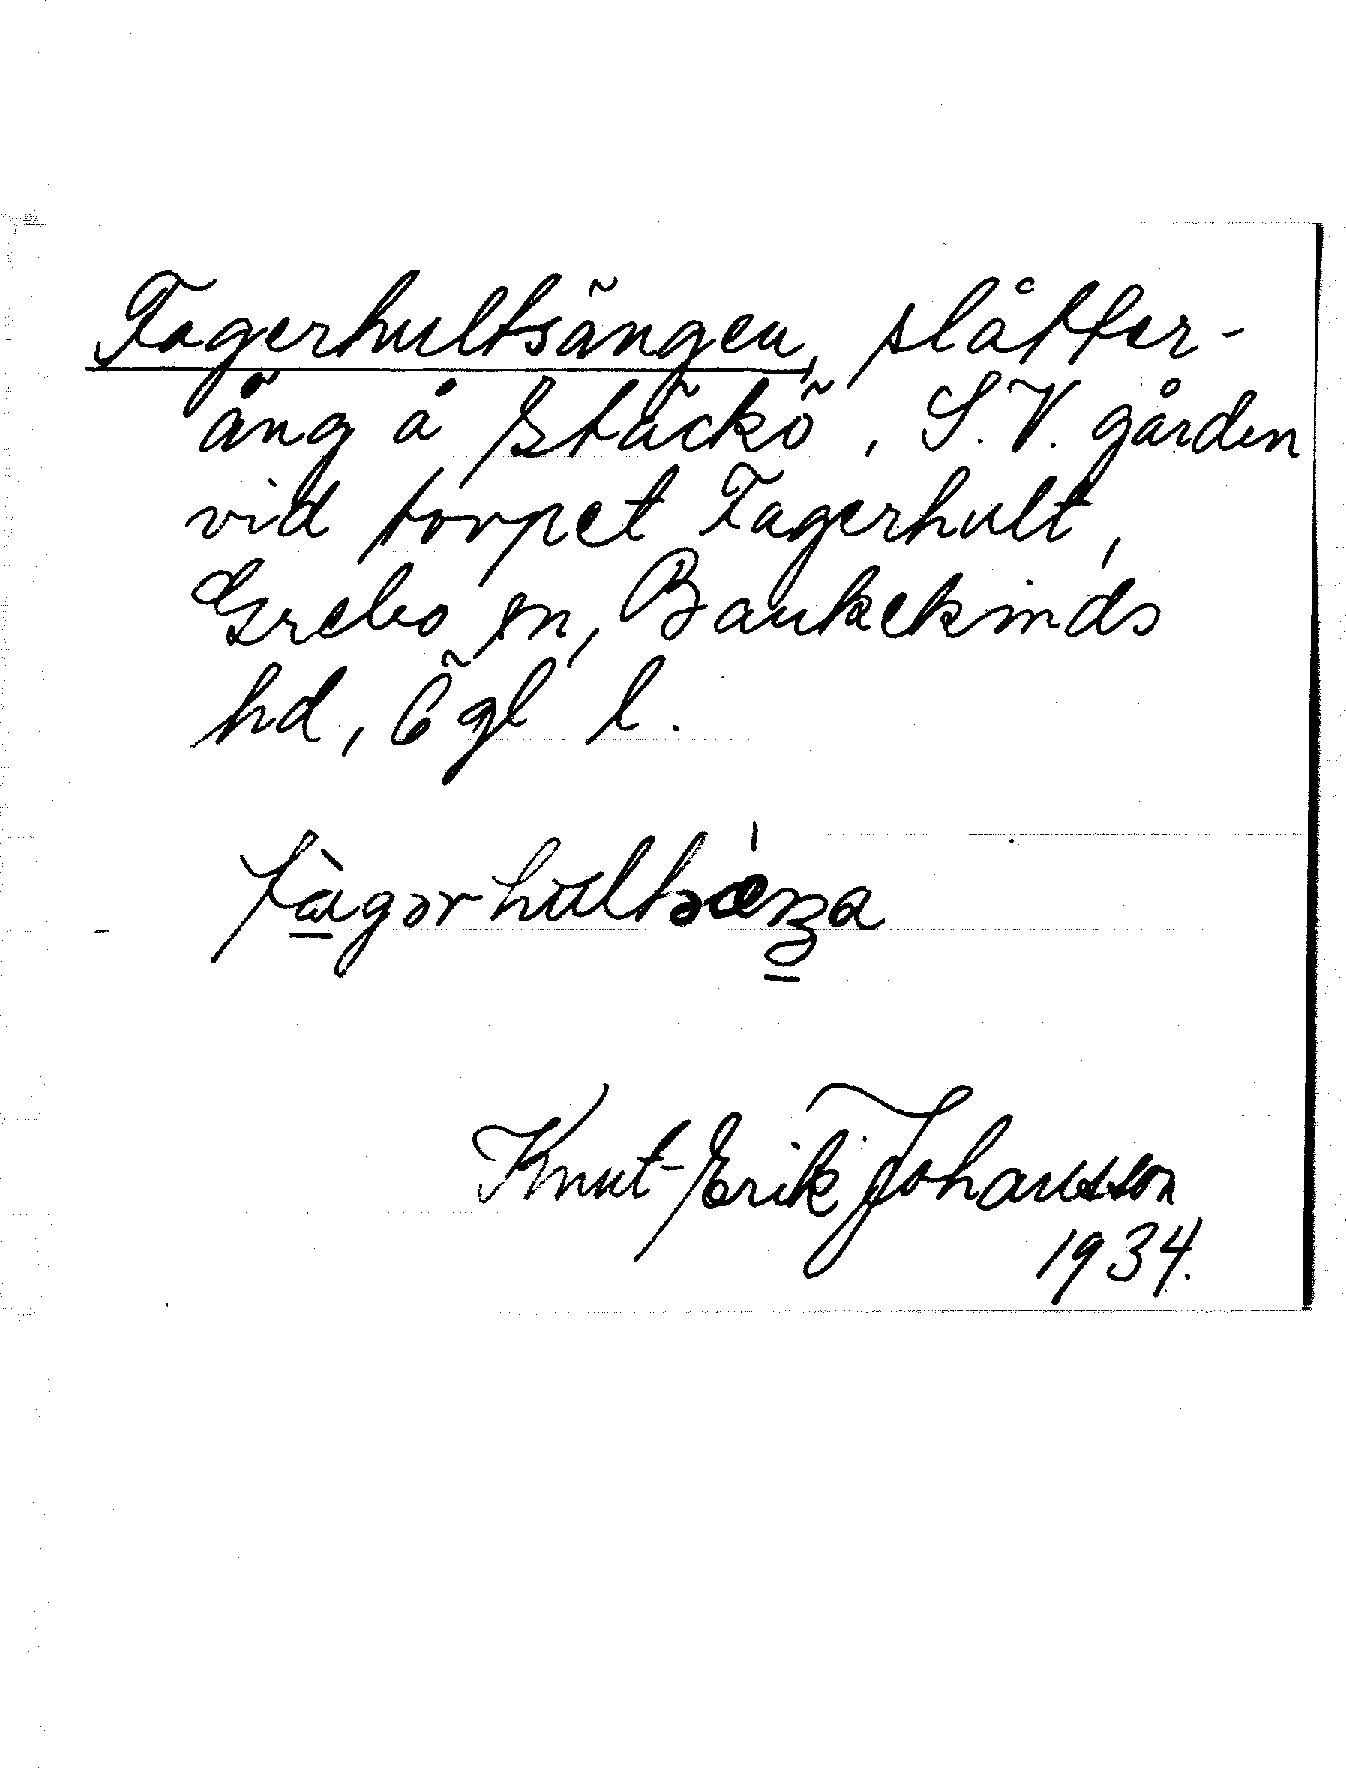 Fagerhultsängen, slåtter-
äng å Stäckö, S.V. gården
vid torpet Fagerhult,
Grebo sn, Bankekinds
hd, Ögl l.
Knut-Erik Johansson
1934.